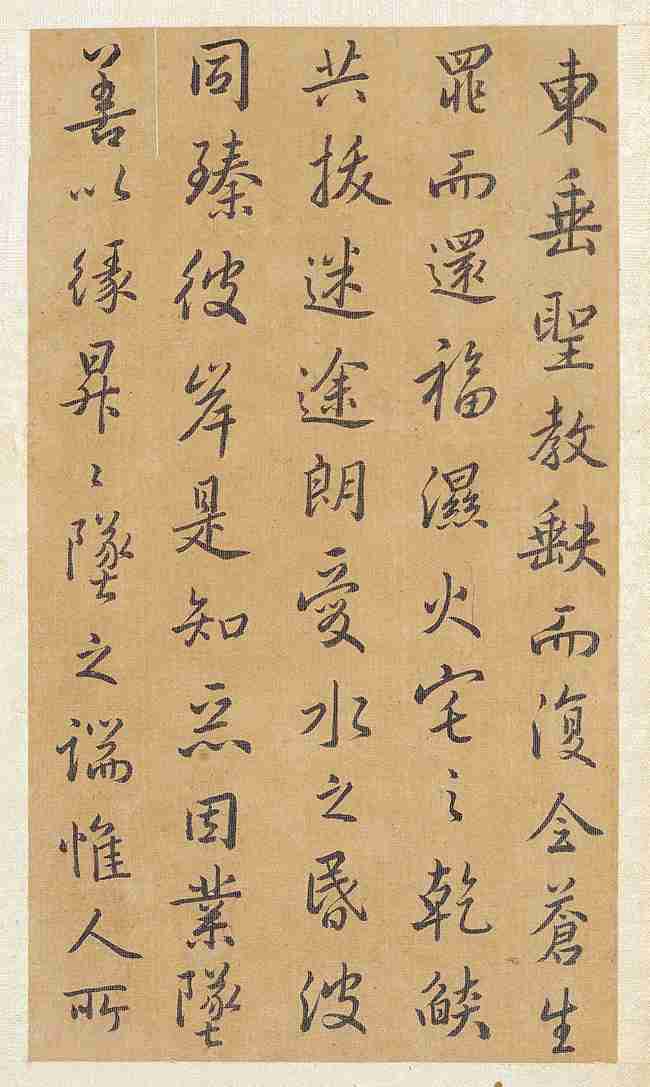 東垂聖教缺而復全蒼生
罪而還福濕火宅之乾燄
共拔迷途朗愛水之昬波
同臻彼岸是知惡因業墜
善以緣昇〻墜之端惟人所